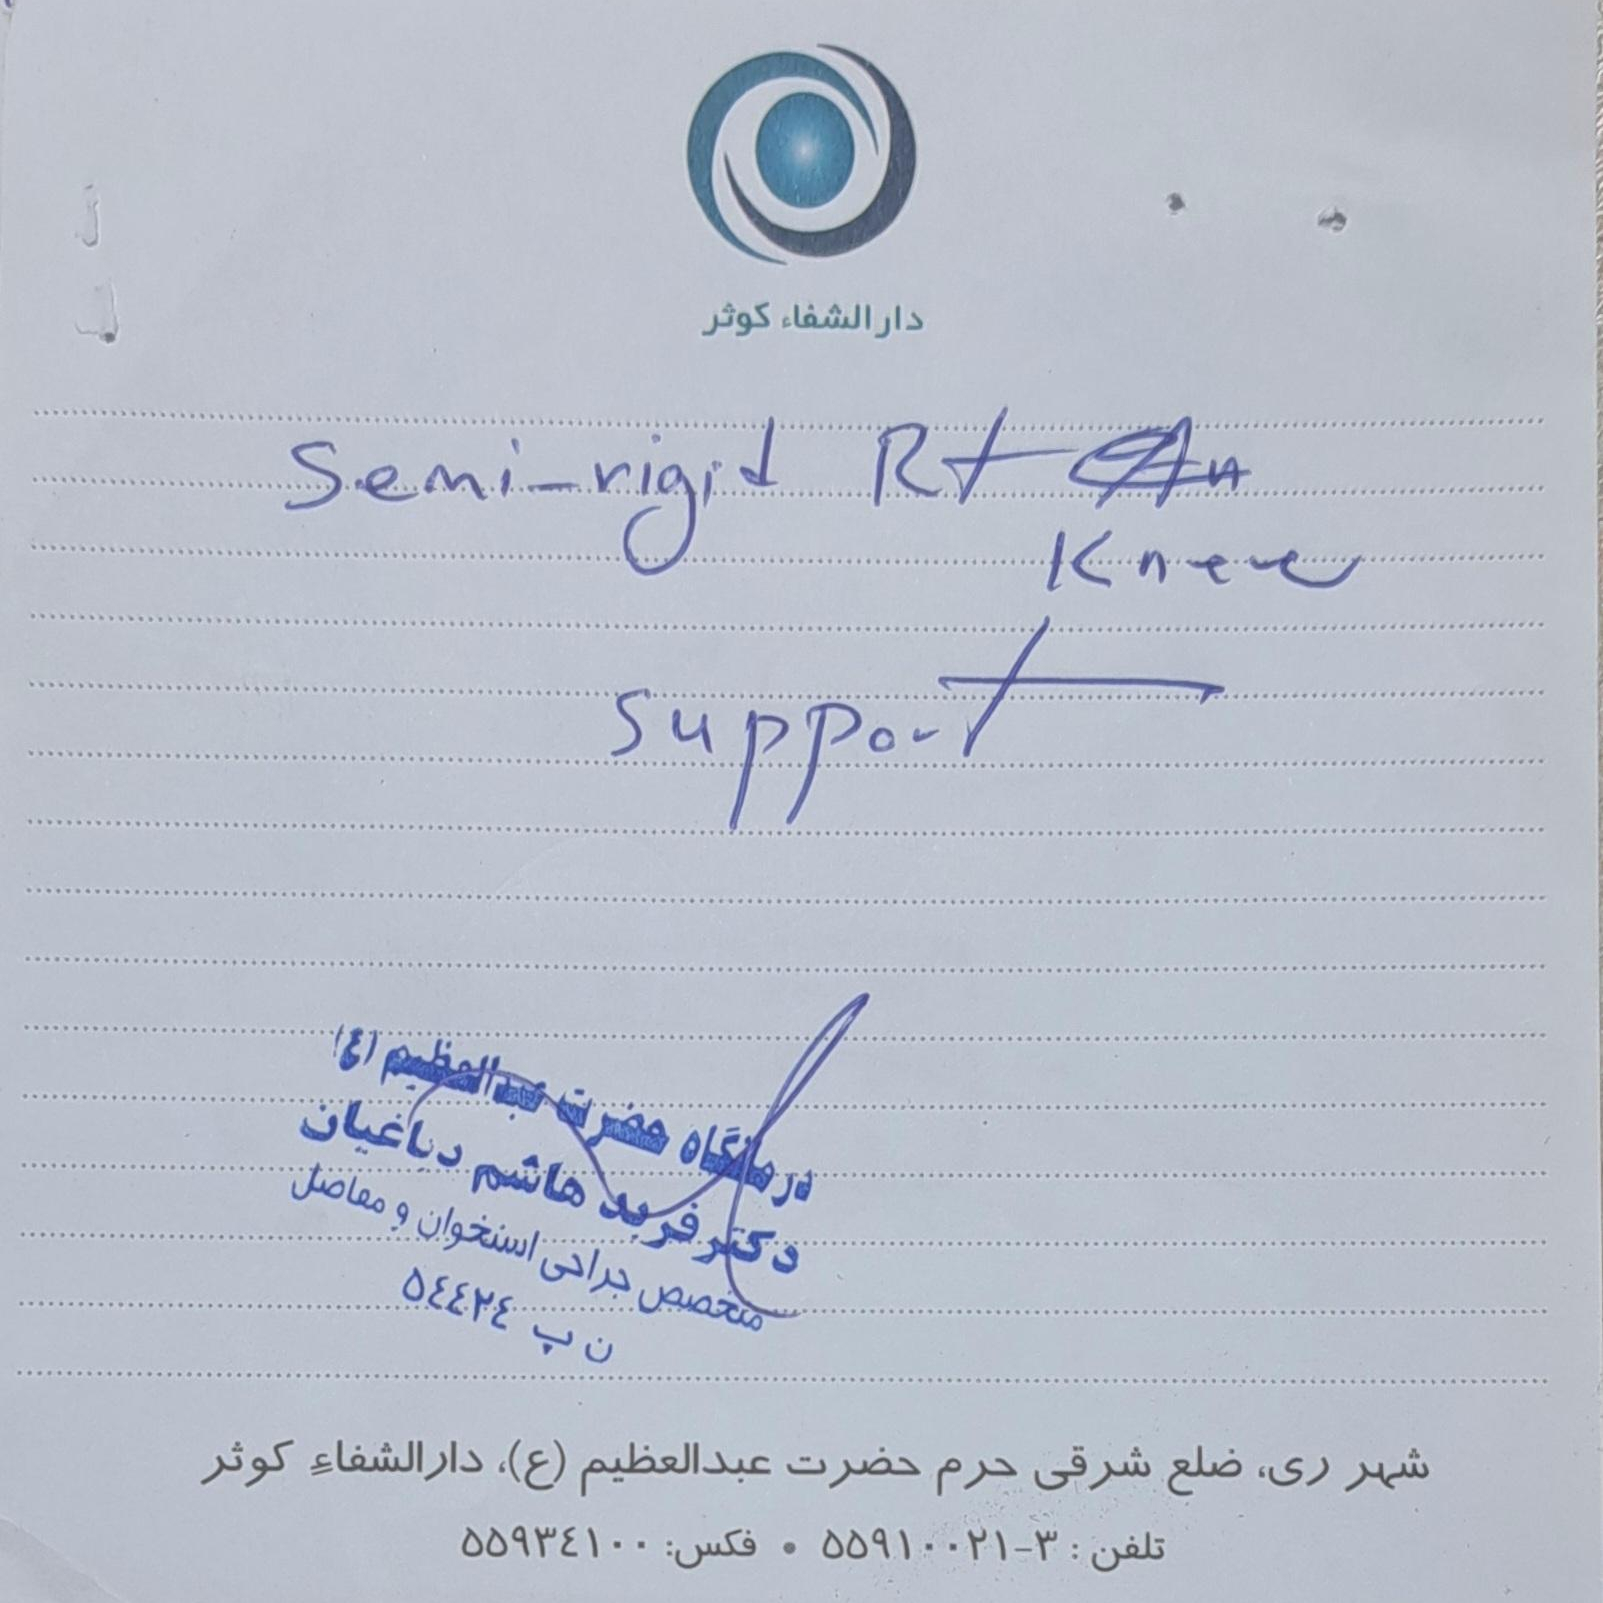 دارالشفاء کوثر
Semi-rigid Rt
Knee
support
درمانگاه حضرت عبدالعظیم (ع)
دکتر فرید هاشم دباغیان
متخصص جراحی استخوان و مفاصل
ن پ ٥٤٤٢٤
شهر ری، ضلع شرقی حرم حضرت عبدالعظیم (ع)، دارالشفاءِ کوثر
تلفن : ۳-۵۵۹۱۰۰۲۱ • فکس: ۵۵۹۳٤۱۰۰